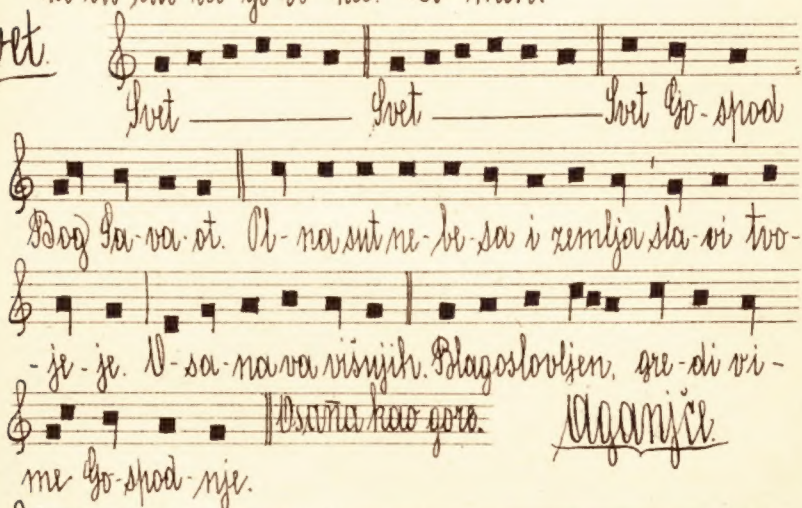 Svet.
Svet Svet Svet Go-spod
Bog Sa-va-ot. Pl-na sut ne-be-sa i zemlja sla-vi tvo-
-je-je. O-sa-na va višnjih. Blagoslovljen, gre-di vi-
me Go-spod-nje. Osaña kao gore. Aganjče.